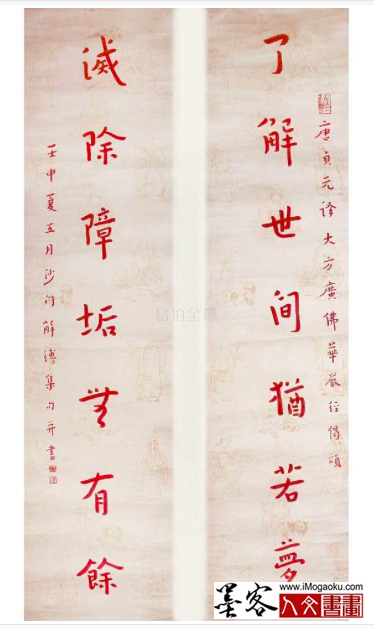 唐貞元譯大方廣佛華嚴經偈頌
了解世间猶若夢
滅除障垢無有餘
壬申夏五月沙門解縛集句并書
易佰全球
墨客
www.iMogaoku.com
人文書畫